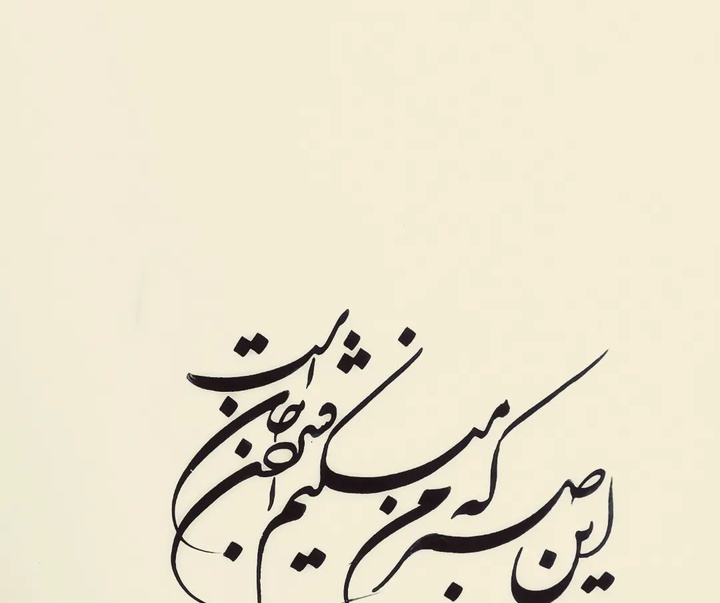 این صبر که من میکنم افشردن جان است